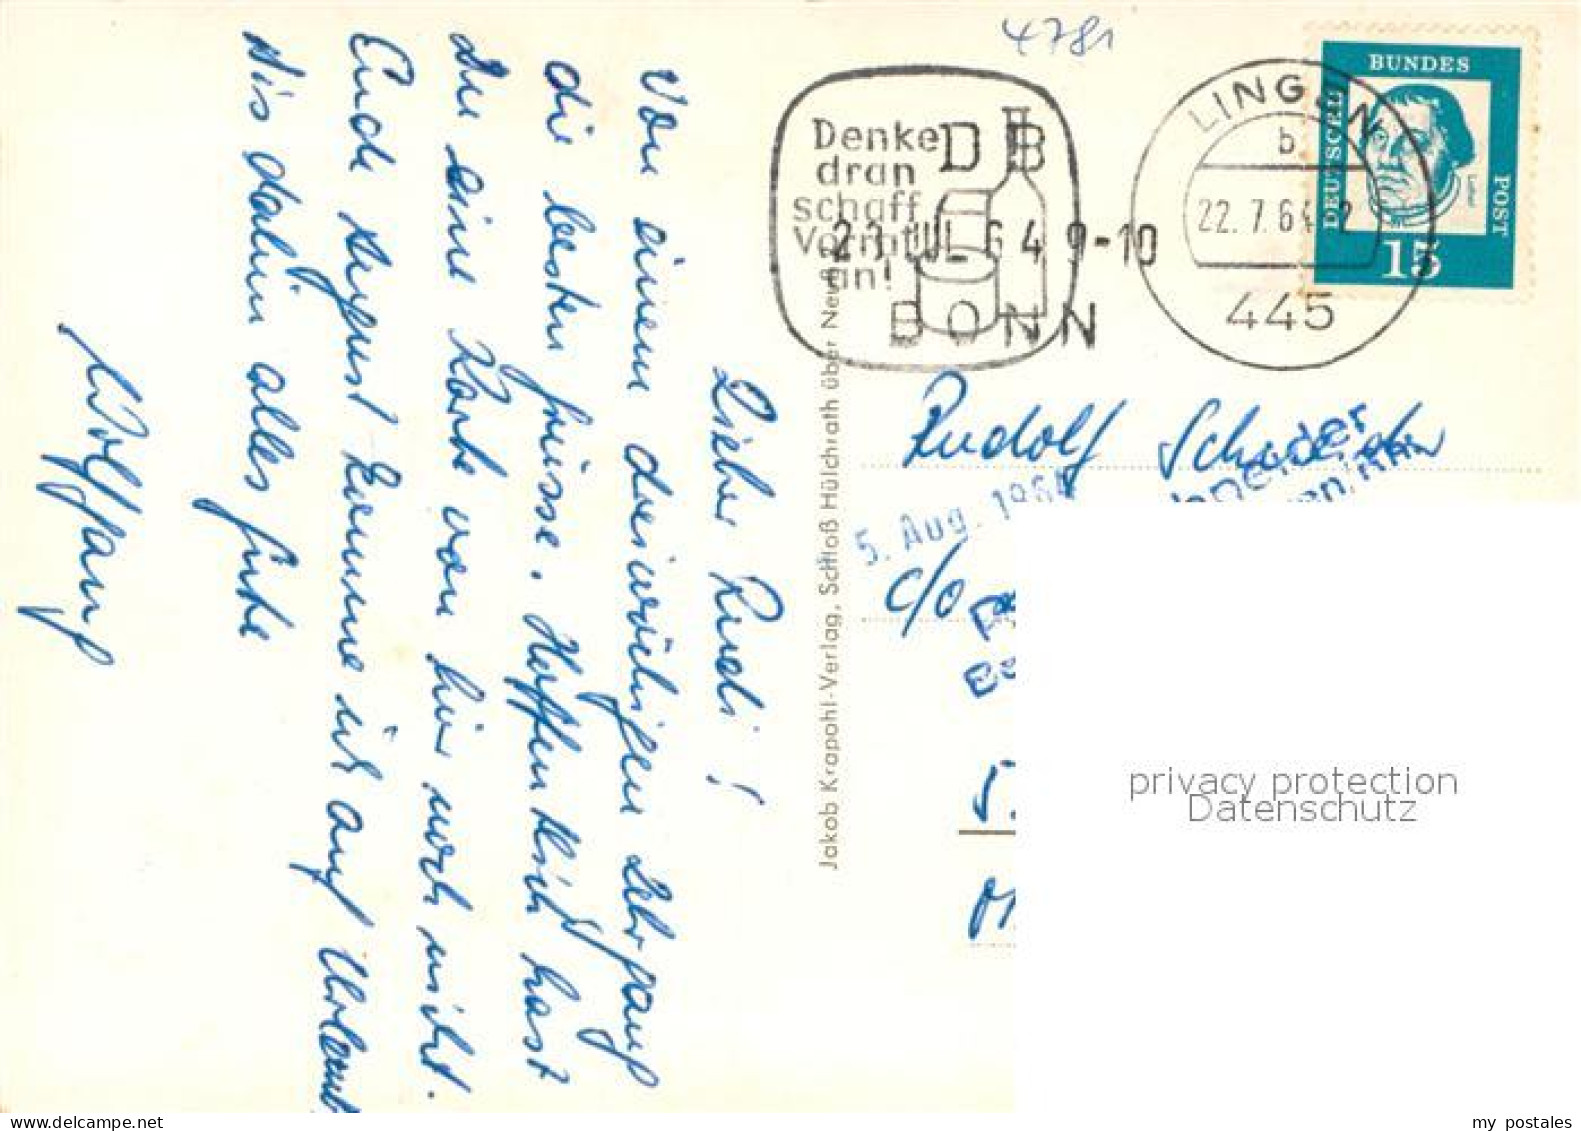 4781
Denke
dran
schaff
Vorrat
an!
DB
23 JUL 64 9-10
BONN
LINGEN
b
22.7.64
445
BUNDES
DEUTSCHE
POST
15
Lieber Rudi!
Von einem dreiwöchigen Lehrgang
die besten Grüsse. Hoffentlich hast
Du eine Karte von hier noch nicht.
Ende August komme ich auf Urlaub
Bis dahin alles Gute
Wolfgang
Jakob Krapohl-Verlag, Schloß Hülchrath über Neu
Rudolf
5. Aug. 1964
c/o
privacy protection
Datenschutz
my postales